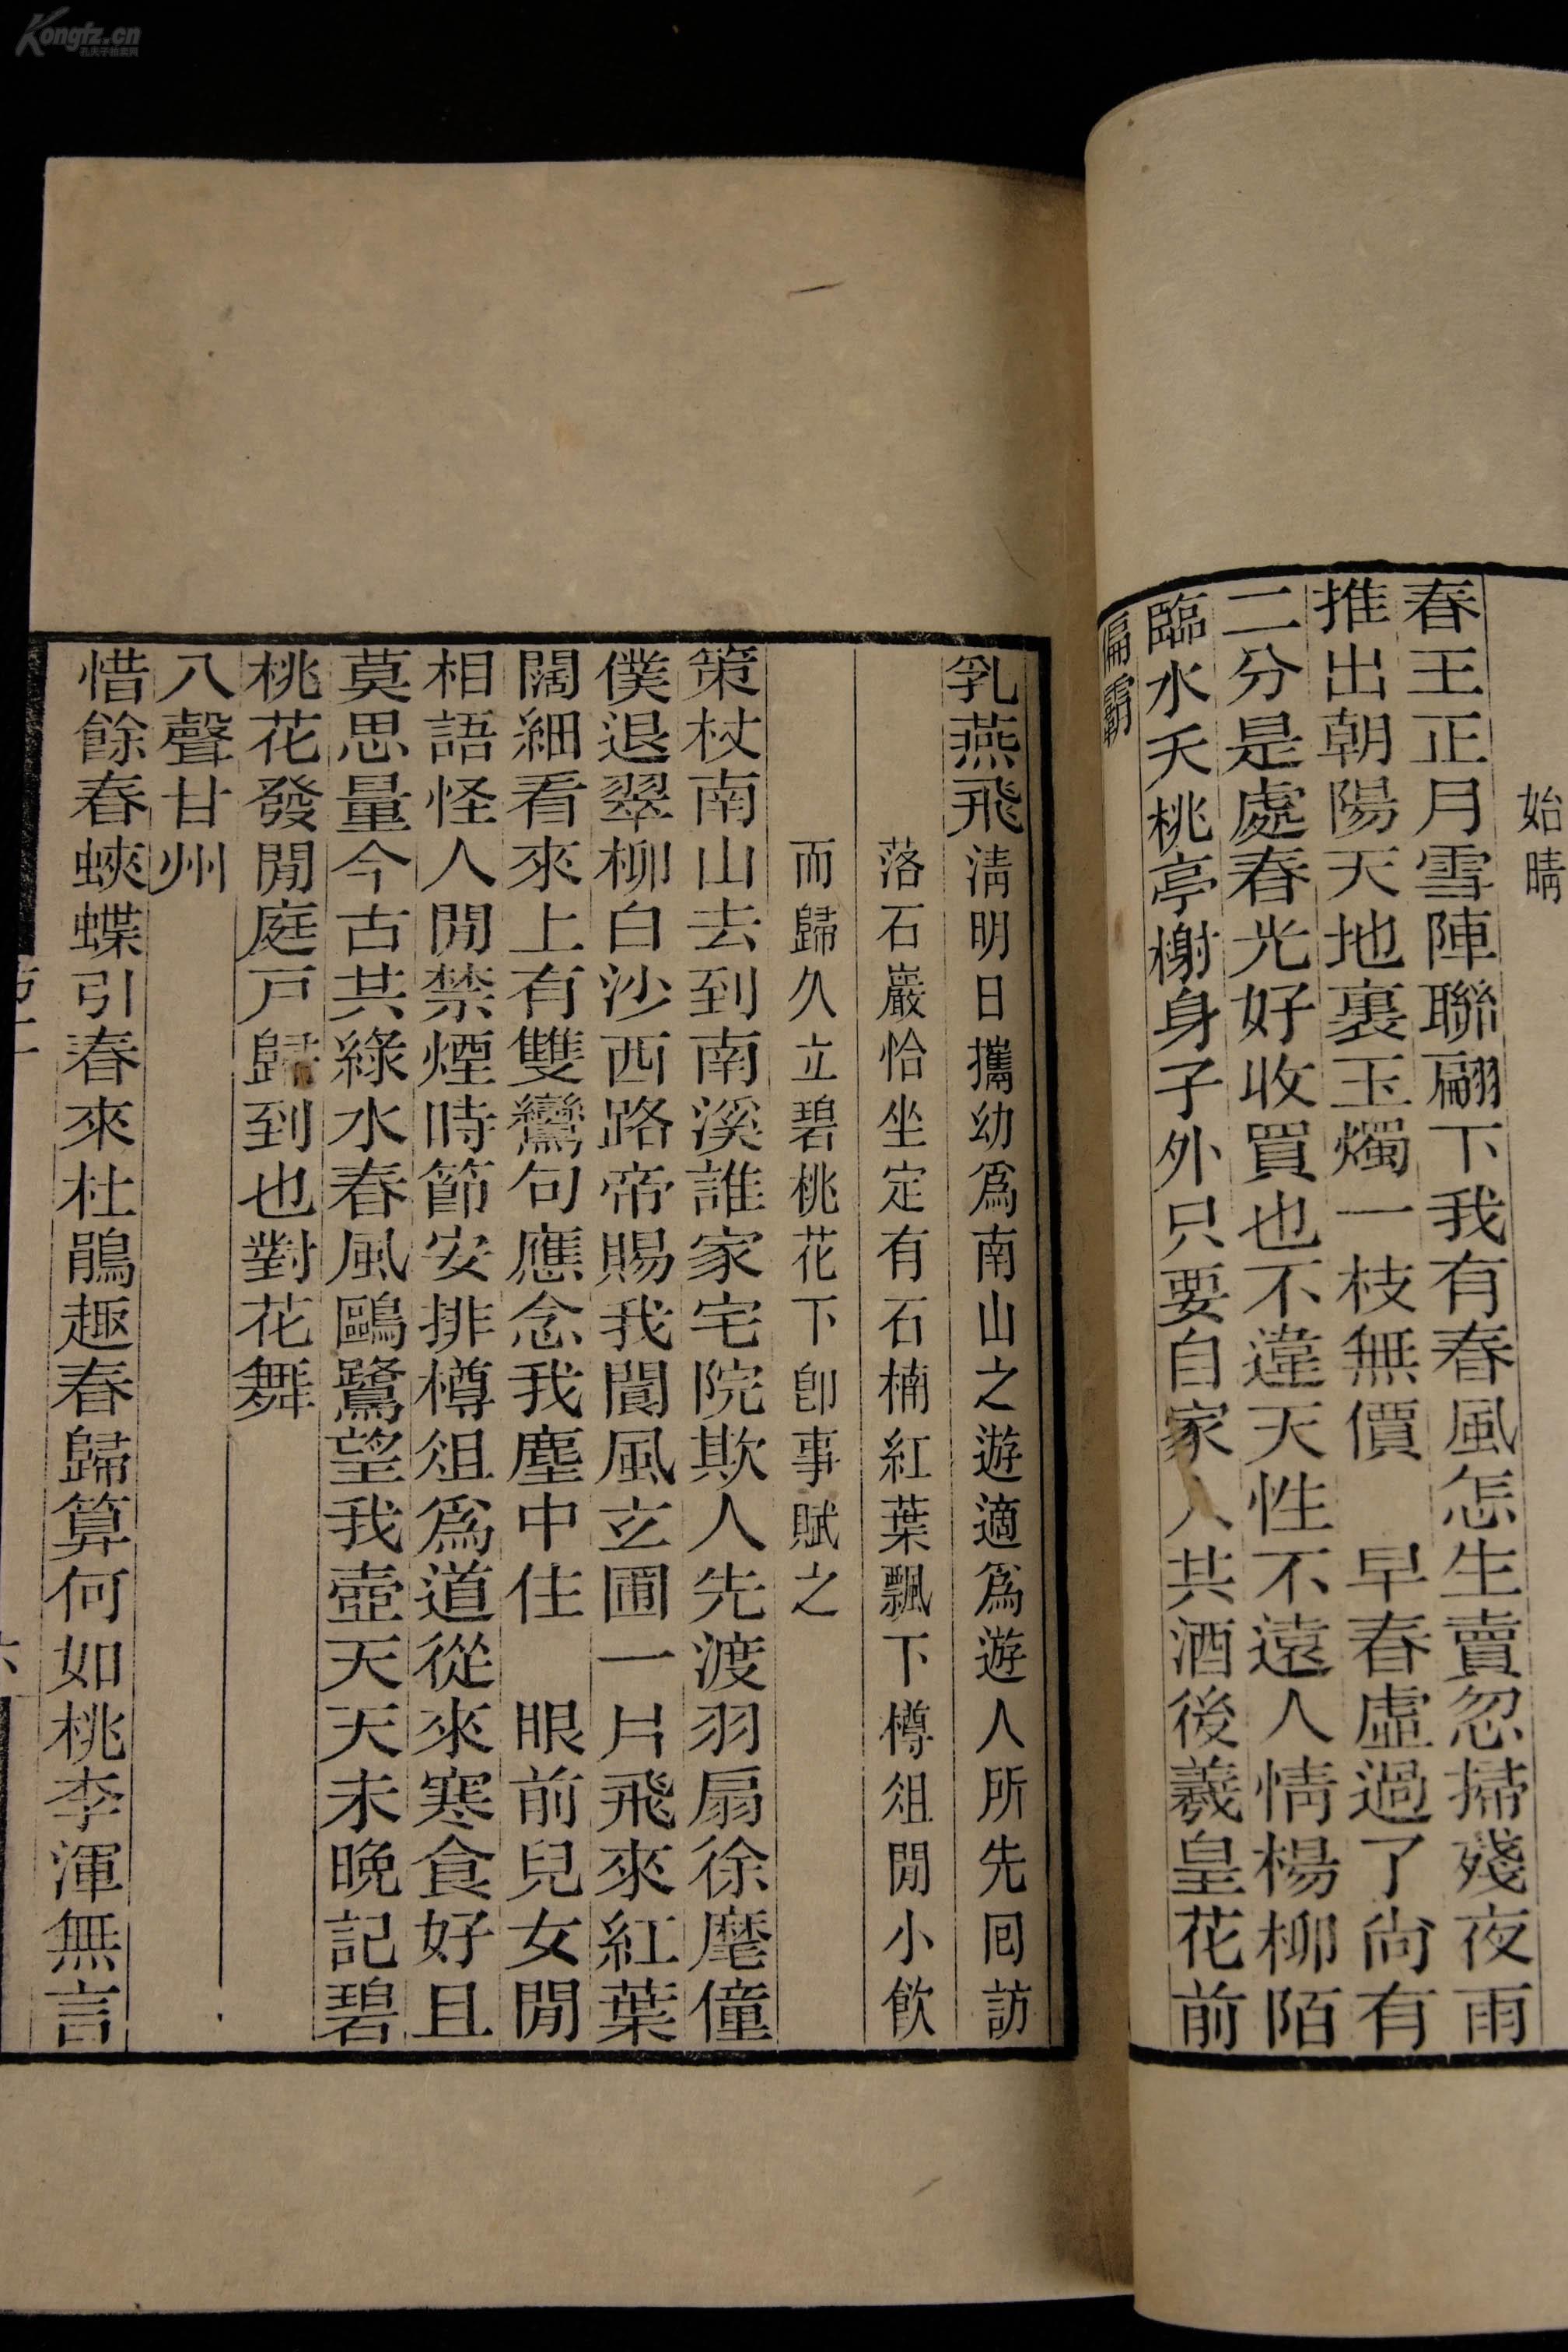 始晴
春王正月雪陣聯翩下我有春風怎生賣忽掃殘夜雨
推出朝陽天地裏玉燭一枝無價　早春虛過了尙有
二分是處春光好收買也不違天性不遠人情楊柳陌
臨水夭桃亭榭身子外只要自家人共酒後羲皇花前
偏霸
乳燕飛清明日攜幼爲南山之遊適爲遊人所先囘訪
落石巖恰坐定有石楠紅葉飄下樽俎閒小飮
而歸久立碧桃花下卽事賦之
策杖南山去到南溪誰家宅院欺人先渡羽扇徐麾僮
僕退翠柳白沙西路帝賜我閬風玄圃一片飛來紅葉
闊細看來上有雙鸞句應念我塵中住　眼前兒女閒
相語怪人閒禁煙時節安排樽俎爲道從來寒食好且
莫思量今古共綠水春風鷗鷺望我壺天天未晚記碧
桃花發閒庭戸歸到也對花舞
八聲甘州
惜餘春蛺蝶引春來杜鵑趣春歸算何如桃李渾無言
Kongfz.cn